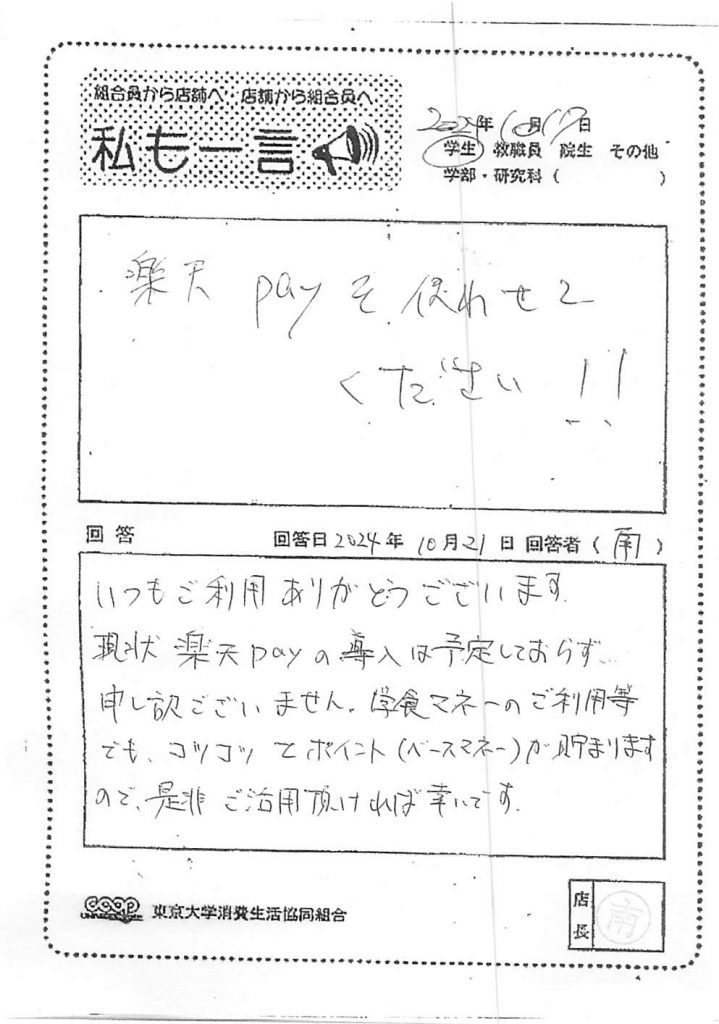 組合員から店舗へ 店舗から組合員へ
私も一言
2024年10月17日
学生 教職員 院生 その他
学部・研究科( )
楽天 payを使わせて
ください!!
回答 回答日2024年10月21日 回答者(南)
いつもご利用ありがとうございます。
現状 楽天payの導入は予定しておらず、
申し訳ございません。学食マネーのご利用等
でも、コツコツとポイント(ベースマネー)が貯まります
ので、是非ご活用頂ければ幸いです。
coop 東京大学消費生活協同組合
店長
南